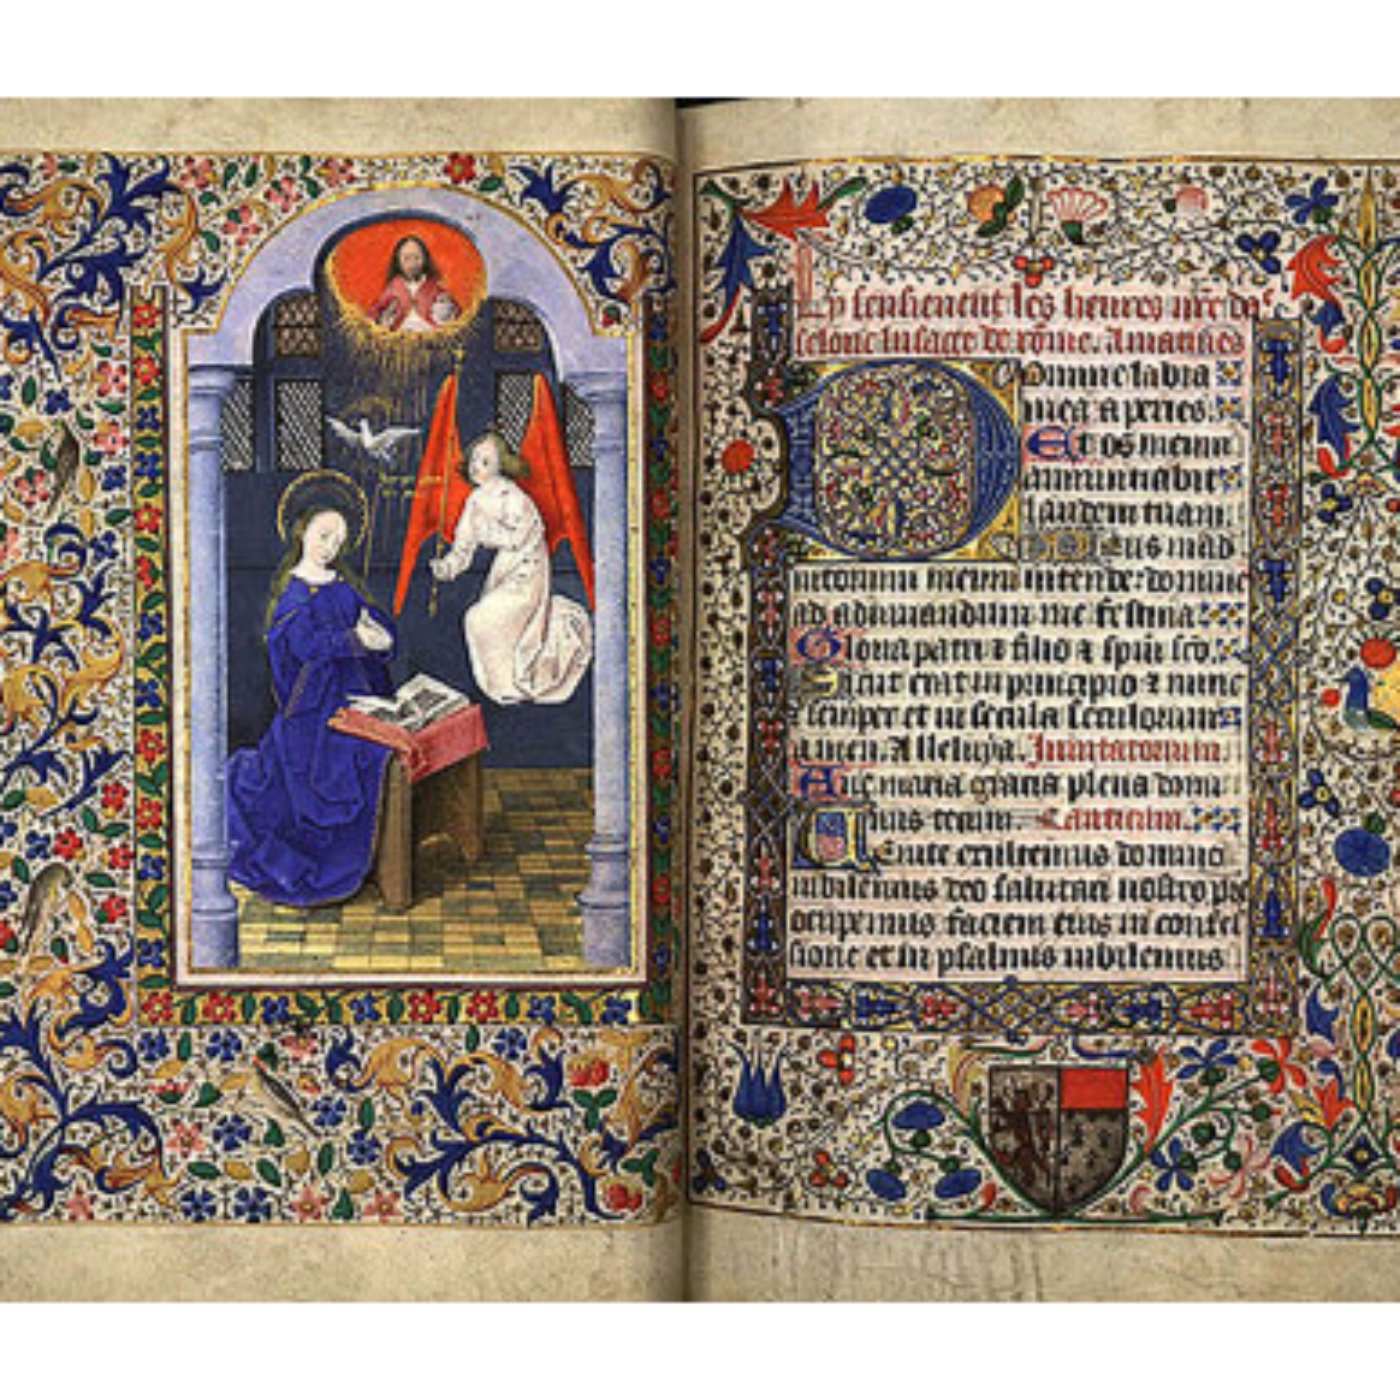 Cy sensieuent les heures nr̃e da᷎
selonc lusage de rõme. A matines
Domine labia
mea aperies.
Et os meum
annuntiabit
laudem tuam.
Deus in ad
iutorium meum intende: domine
ad adiuuandum me festina
Gloria patri ⁊ filio ⁊ spiri sc̃o.
Sicut erat in principio ⁊ nunc
⁊ semper et in secula seculorum
amen. Alleluya. Inuitatorium.
Aue maria gratia plena domi
nus tecum. Canticum.
Uenite exultemus domino
iubilemus deo salutari nostro pre
ocupemus faciem eius in confes
sione et in psalmis iubilemus